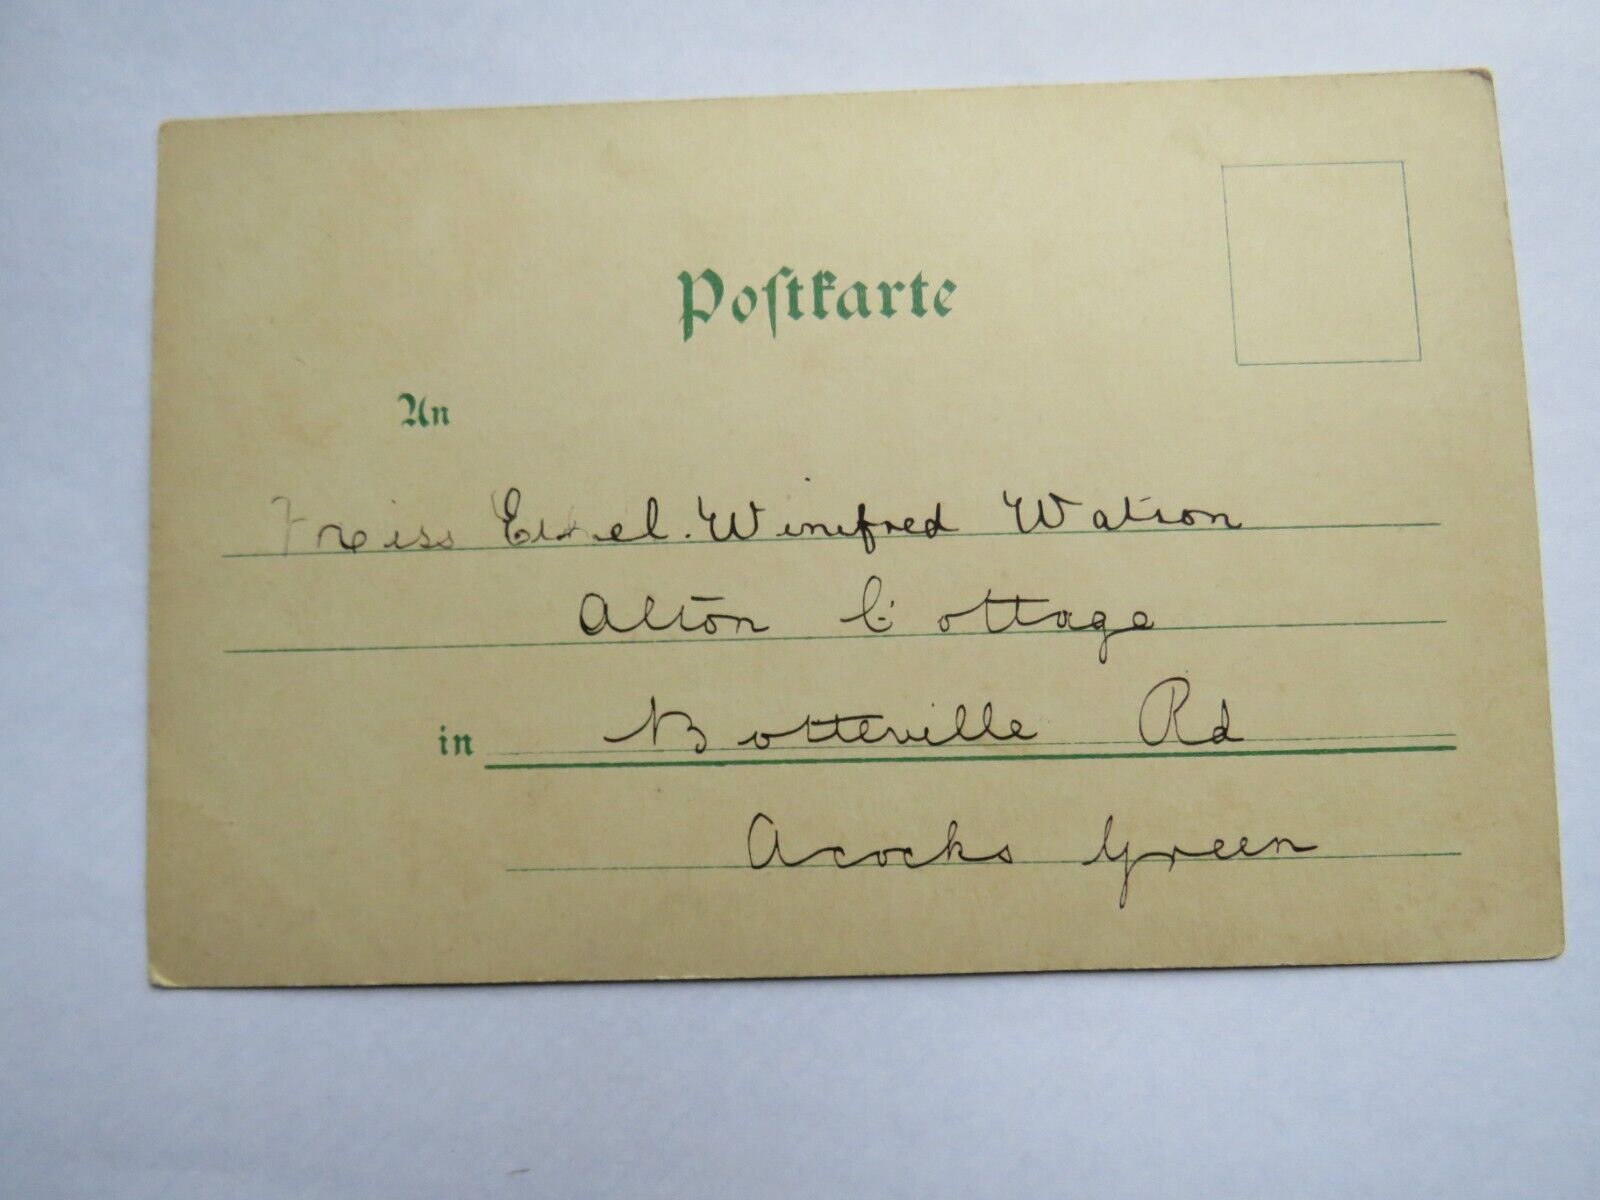 Postkarte
An
Miss Ethel. Winifred Watson
Alton Cottage
in Botteville Rd
Acocks Green